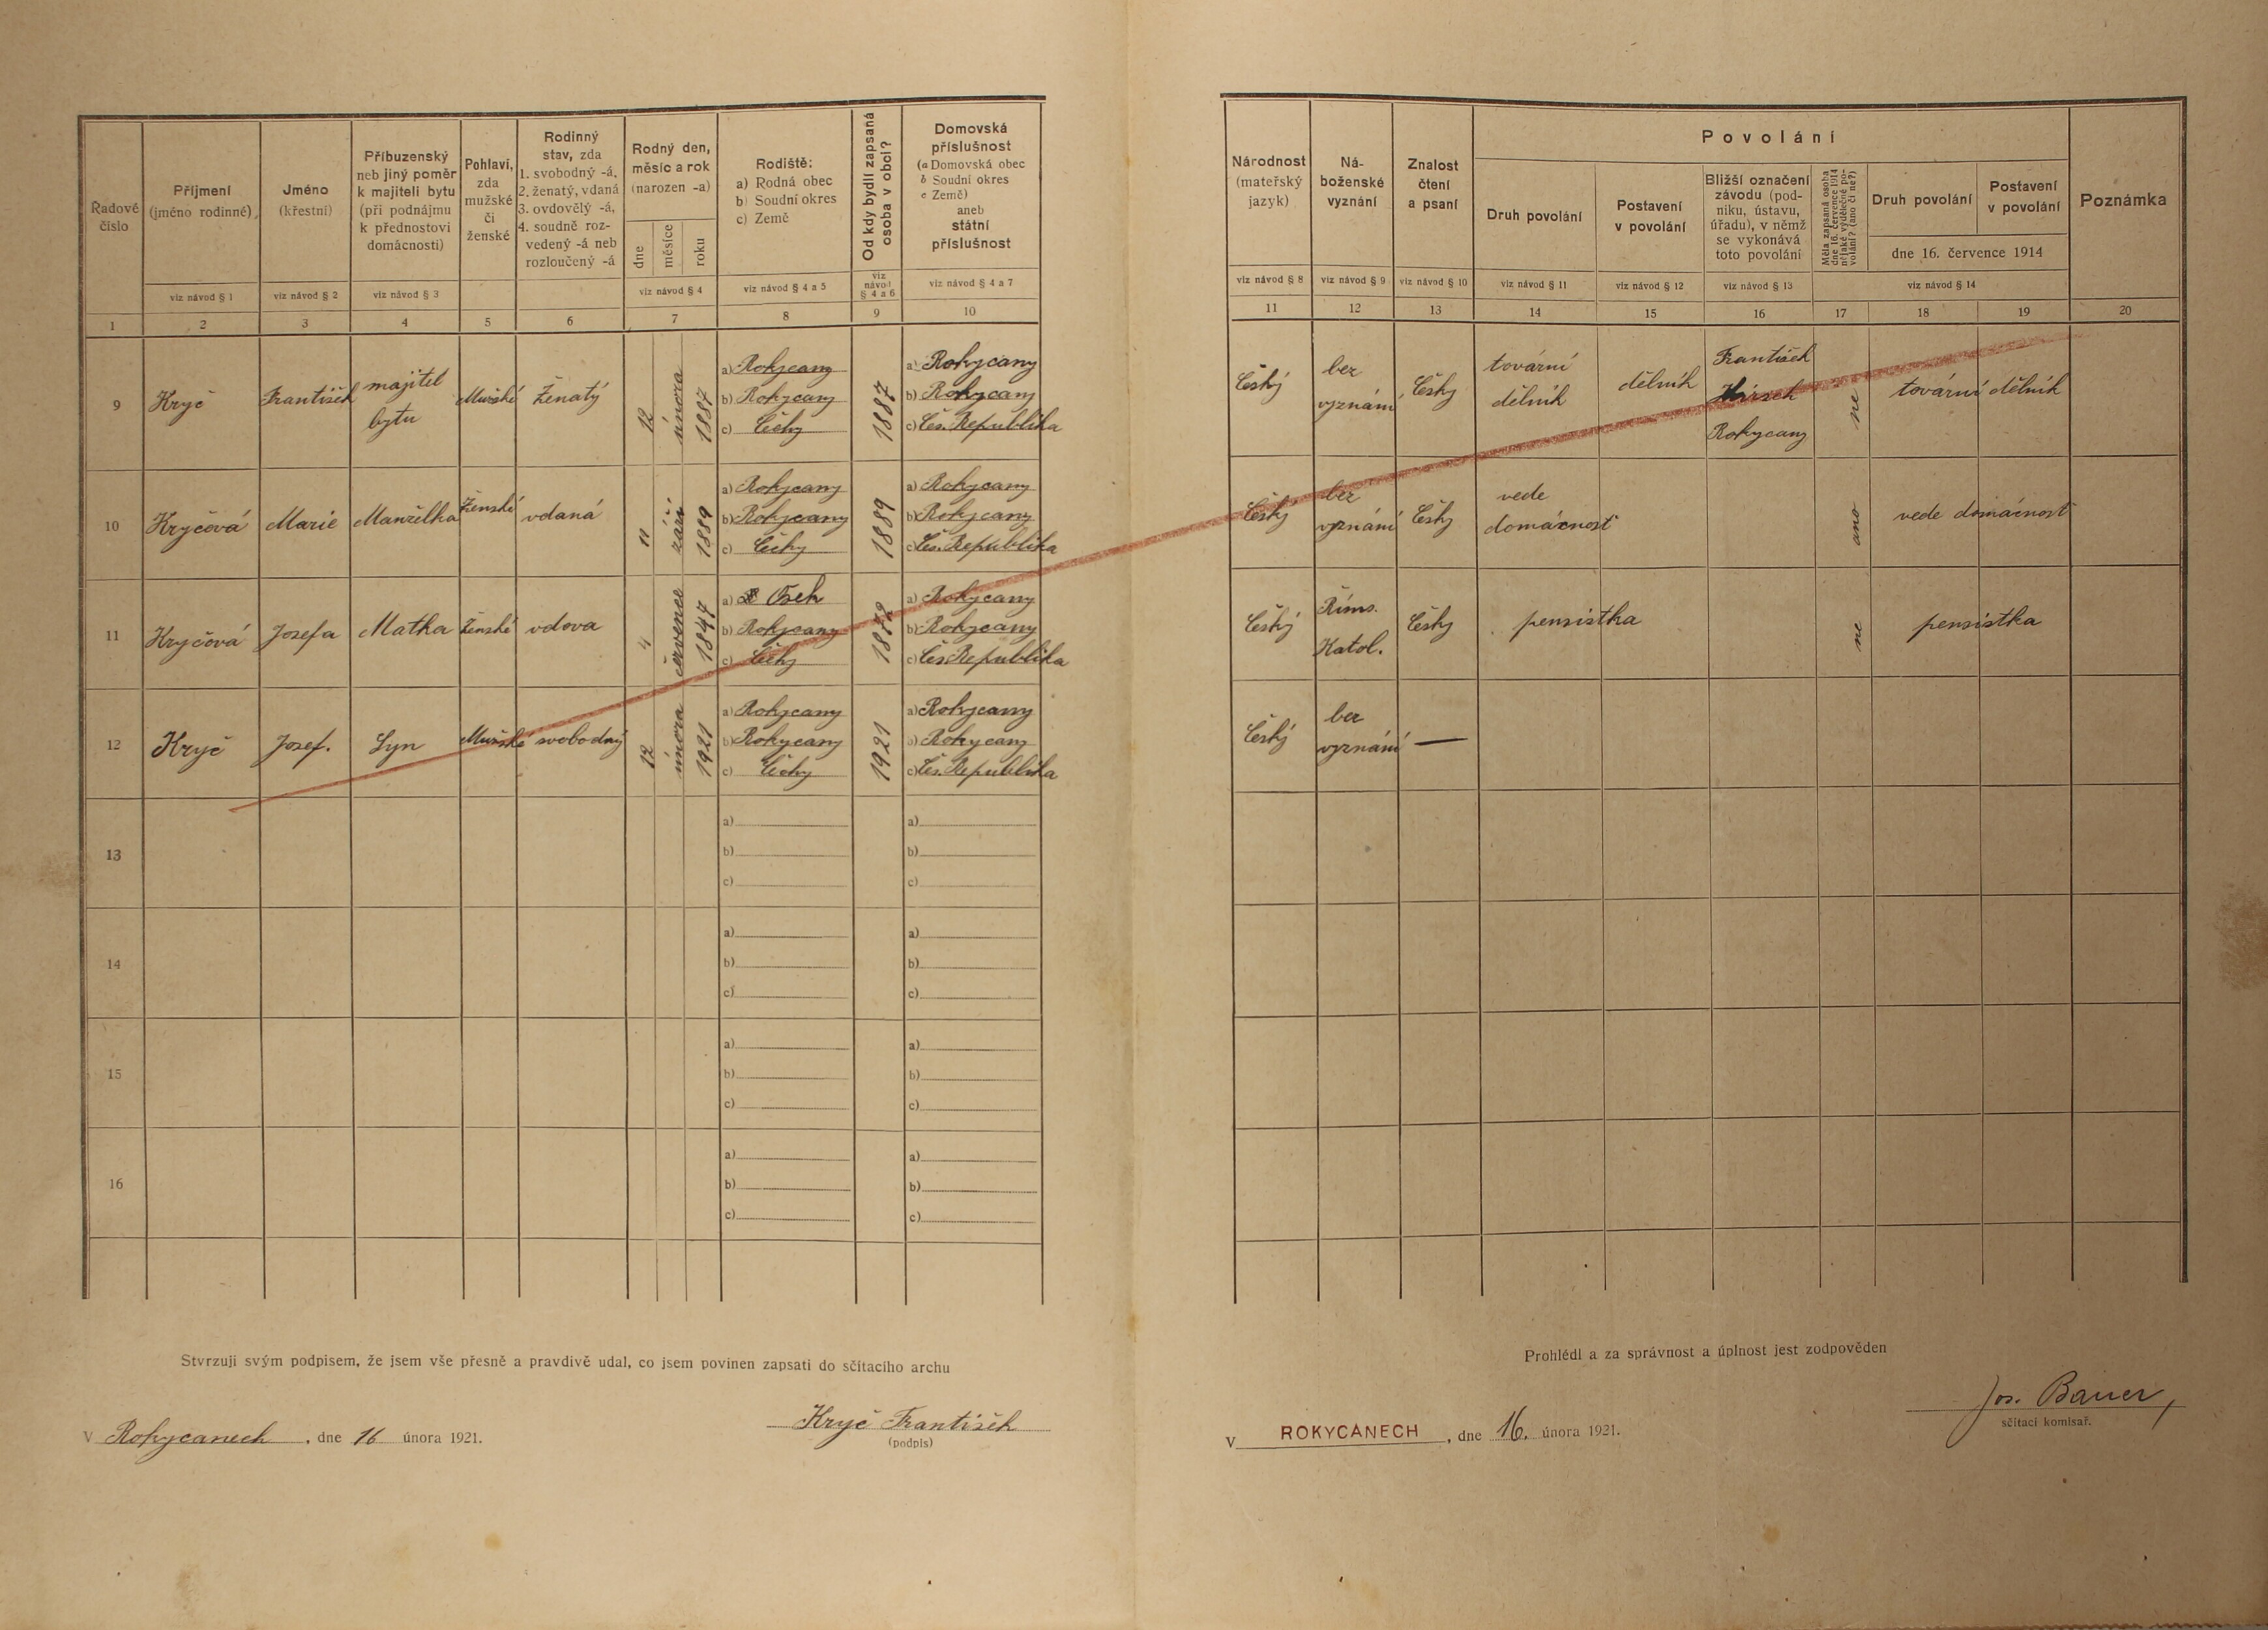 Řadové číslo
Příjmení
(jméno rodinné)
viz návod § 1
Jméno
(křestní)
viz návod § 2
Příbuzenský
neb jiný poměr
k majiteli bytu
(při podnájmu
k přednostovi
domácnosti)
viz návod § 3
Pohlaví,
zda
mužské
či
ženské
Rodinný
stav, zda
1. svobodný -á,
2. ženatý, vdaná
3. ovdovělý -á,
4. soudně roz-
vedený -á neb
rozloučený -á
Rodný den,
měsíc a rok
(narozen -a)
dne
měsíce
roku
viz návod § 4
Rodiště:
a) Rodná obec
b) Soudní okres
c) Země
viz návod § 4 a 5
Od kdy bydlí zapsaná
osoba v obci?
viz
návod
§ 4 a 6
Domovská
příslušnost
(a Domovská obec
b Soudní okres
c Země)
aneb
státní
příslušnost
viz návod § 4 a 7
1 2 3 4 5 6 7 8 9 10
Národnost
(mateřský
jazyk)
viz návod § 8
Ná-
boženské
vyznání
viz návod § 9
Znalost
čtení
a psaní
viz návod § 10
Povolání
Druh povolání
viz návod § 11
Postavení
v povolání
viz návod § 12
Bližší označení
závodu (pod-
niku, ústavu,
úřadu), v němž
se vykonává
toto povolání
viz návod § 13
Měla zapsaná osoba
dne 16. července 1914
nějaké výdělečné po-
volání? (ano či ne?)
Druh povolání
Postavení
v povolání
dne 16. července 1914
viz návod § 14
Poznámka
11 12 13 14 15 16 17 18 19 20
9 Kryč František majitel bytu Mužské Ženatý 12 února 1887
a) Rokycany
b) Rokycany
c) Čechy
1887
a) Rokycany
b) Rokycany
c) Čes. Republika
Český bez vyznání Česky tovární dělník dělník František Hirsch Rokycany ne tovární dělník
10 Kryčová Marie Manželka Ženské vdaná 11 září 1889
a) Rokycany
b) Rokycany
c) Čechy
1889
a) Rokycany
b) Rokycany
c) Čes. Republika
Český bez vyznání Česky vede domácnost ano vede domácnost
11 Kryčová Josefa Matka Ženské vdova 4 července 1847
a) Osek
b) Rokycany
c) Čechy
a) Rokycany
b) Rokycany
c) Čes. Republika
Český Říms. Katol. Česky pensistka ne pensistka
12 Kryč Josef. Syn Mužské svobodný 12 února 1921
a) Rokycany
b) Rokycany
c) Čechy
1921
a) Rokycany
b) Rokycany
c) Čes. Republika
Český bez vyznání —
13
a) a)
b) b)
c) c)
14
a) a)
b) b)
c) c)
15
a) a)
b) b)
c) c)
16
a) a)
b) b)
c) c)
Stvrzuji svým podpisem, že jsem vše přesně a pravdivě udal, co jsem povinen zapsati do sčítacího archu
V Rokycanech, dne 16 února 1921.
Kryč František
(podpis)
Prohlédl a za správnost a úplnost jest zodpověden
V ROKYCANECH, dne 16. února 1921.
Jos. Bauer,
sčítací komisař.